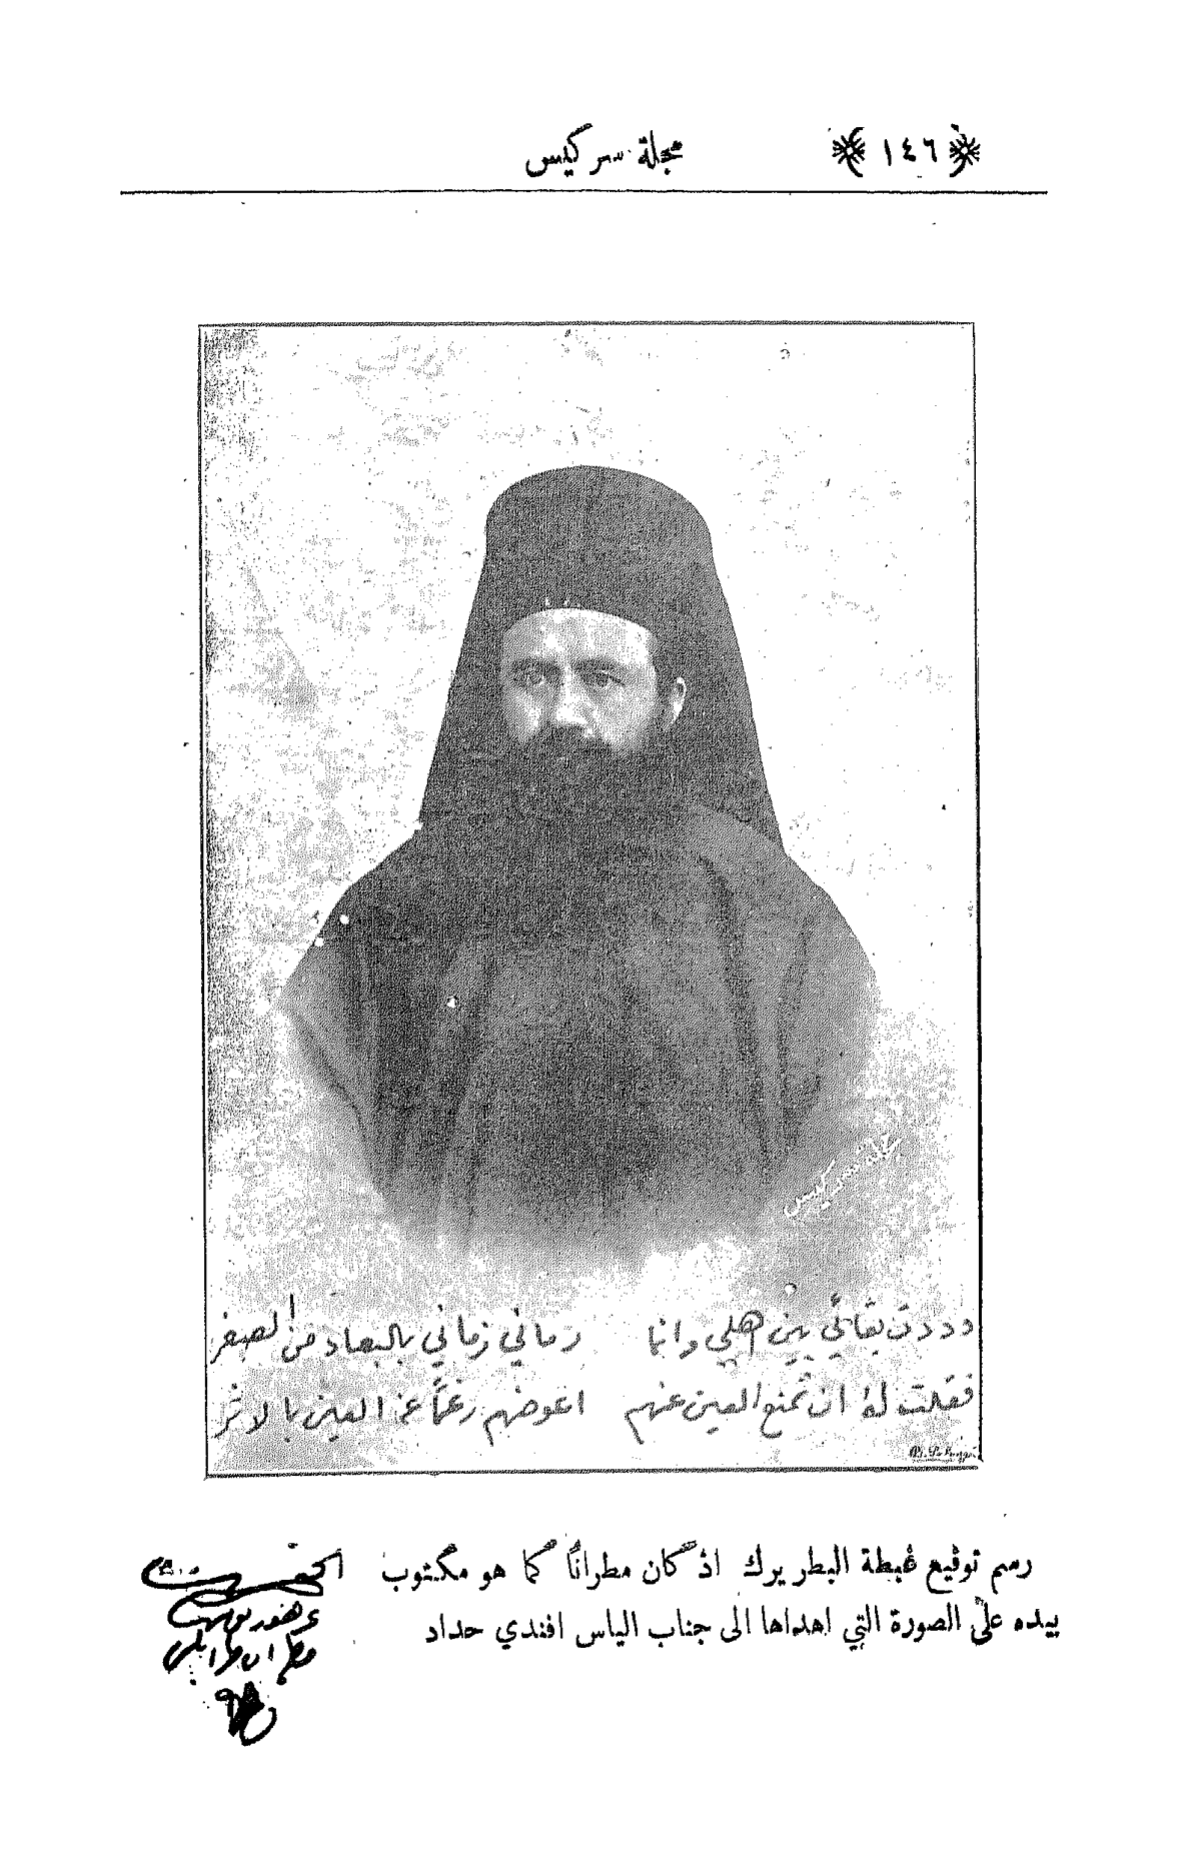 ﴿ ١٤٦ ﴾ مجلة سركيس
مجلة سركيس
وددت بقائي بين اهلي وانما رماني زماني بالبعاد من الصغر
فقلت له ان تمنع العين عنهم اعوضهم رغمًا عن العين بالاثر
رسم توقيع غبطة البطريرك اذ كان مطرانًا كما هو مكتوب
بيده على الصورة التي اهداها الى جناب الياس افندي حداد
الحقير
غريغوريوس
مطران طرابلس